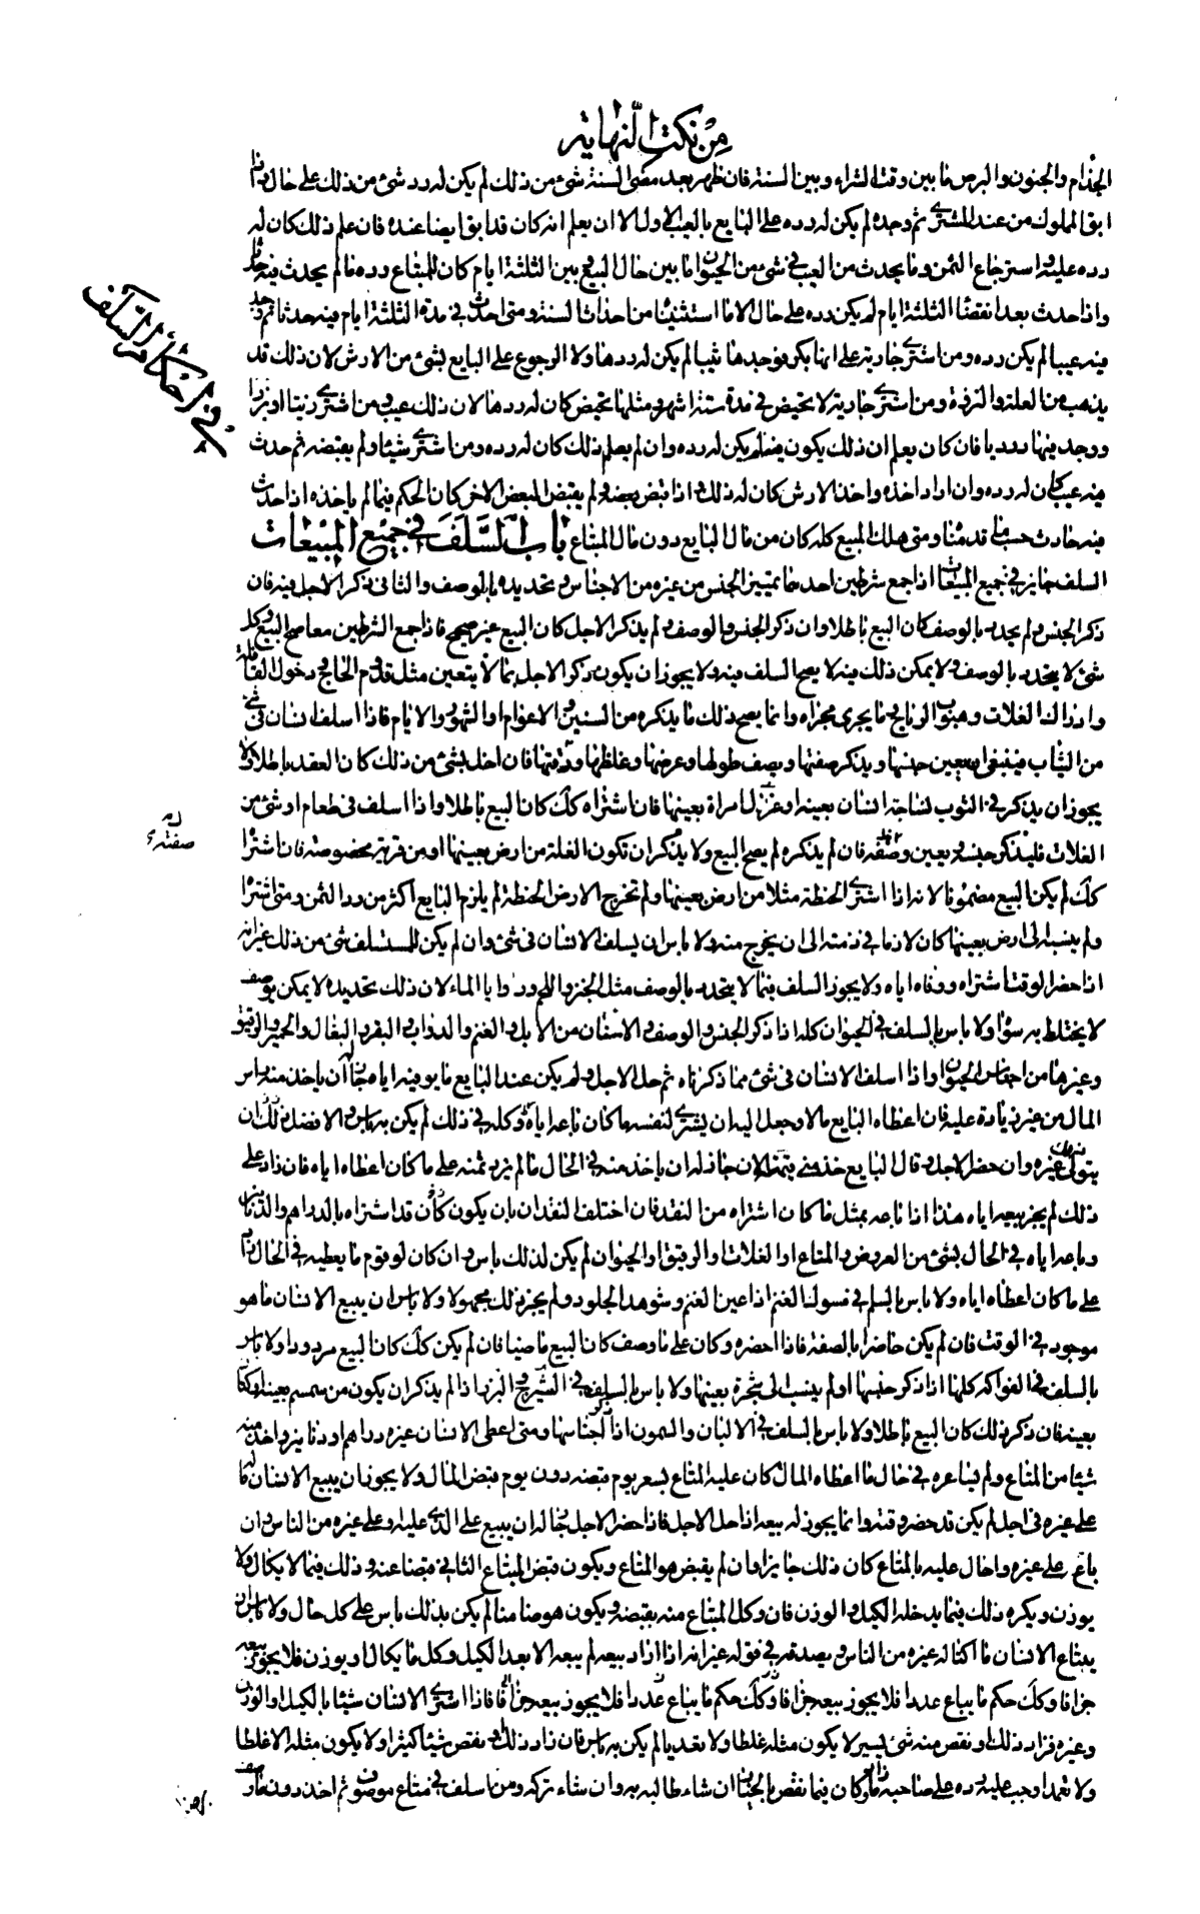 من نكت النهاية
الجذام والجنون والبرص ما بين وقت الشراء وبين السنة فان ظهر بعد مضى السنة شئ من ذلك لم يكن له رد شئ من ذلك على حال واذا
ابق المملوك من عند المشترى ثم وجده لم يكن له رده على البايع بالعيب الاول الا ان يعلم انه كان قد ابق ايضا عنده فان علم ذلك كان له
رده عليه واسترجاع الثمن وما يحدث من العيب فى شئ من الحيوان ما بين حال البيع وبين الثلثة ايام كان للمبتاع رده ما لم يحدث فيه حدثا
واذا حدث بعد انقضاء الثلثة ايام لم يكن رده على حال الا ما استثنينا من احداث السنة ومتى احدث فى مدة الثلثة ايام فيه حدثا ثم وجد
فيه عيبا لم يكن رده ومن اشترى جارية على انها بكر فوجدها ثيبا لم يكن له ردها ولا الرجوع على البايع بشئ من الارش لان ذلك قد
يذهب من العلة والنزوة ومن اشترى جارية لا تحيض فى مدة ستة اشهر ومثلها تحيض كان له ردها لان ذلك عيب ومن اشترى زيتا او بزرا
ووجد فيهما درديا فان كان يعلم ان ذلك يكون فيه لم يكن له رده وان لم يعلم ذلك كان له رده ومن اشترى شيئا ولم يقبضه ثم حدث
فيه عيب كان له رده وان اراد اخذه واخذ الارش كان له ذلك واذا قبض بعضه ولم يقبض البعض الاخر كان الحكم فيما لم ياخذه اذا حدث
فيه حادث حسب ما قدمناه ومتى هلك المبيع كله كان من مال البايع دون مال المبتاع باب السلف فى جميع المبيعات
السلف جايز فى جميع المبيعات اذا جمع شرطين احدهما تمييز الجنس من غيره من الاجناس وتحديده بالوصف والثانى ذكر الاجل فيه فان
ذكر الجنس ولم يحدد بالوصف كان البيع باطلا وان ذكر الجنس والوصف ولم يذكر الاجل كان البيع غير صحيح فاذا جمع الشرطين معا صح البيع وكل
شئ لا يتحدد بالوصف ولا يمكن ذلك فيه لا يصح السلف فيه ولا يجوز ان يكون ذكر الاجل بما لا يتعين مثل قدوم الحاج ودخول القافلة
وادراك الغلات وهبوب الرياح وما يجرى مجراه وانما يصح ذلك ما يذكره من السنين والاعوام او الشهور والايام فاذا اسلف انسان فى شئ
من الثياب فينبغى ان يعين جنسها ويذكر صفتها ويصف طولها وعرضها وغلظها ودقتها فان اخل بشئ من ذلك كان العقد باطلا ولا
يجوز ان يذكر فى الثوب نساجة انسان بعينه او غزل امراة بعينها فان اشتراه كك كان البيع باطلا واذا اسلف فى طعام او شئ من
الغلات فليذكر جنسه ويعين وصفه فان لم يذكره لم يصح البيع ولا يذكر ان تكون الغلة من ارض بعينها او من قرية مخصوصة فان اشتراه
كك لم يكن البيع مضمونا لانه اذا اشترى الحنطة مثلا من ارض بعينها ولم تخرج الارض الحنطة لم يلزم البايع اكثر من رد الثمن ومتى اشتراه
ولم ينسبه الى ارض بعينها كان لازما فى ذمته الى ان يخرج منه ولا باس ان يسلف الانسان فى شئ وان لم يكن للمستسلف شئ من ذلك غير انه
اذا حضر الوقت اشتراه ووفاه اياه ولا يجوز السلف فيما لا يتحدد بالوصف مثل الخبز واللحم وروايا الماء لان ذلك تحديده لا يمكن بوصف
لا يختلط به سواه ولا باس بالسلف فى الحيوان كله اذا ذكر الجنس والوصف والاسنان من الابل والغنم والدواب والبقر والبغال والحمير والرقيق
وغيرها من اجناس الحيوان واذا اسلف الانسان فى شئ مما ذكرناه ثم حل الاجل ولم يكن عند البايع ما يوفيه اياه جاز ان ياخذ منه راس
المال من غير زيادة عليه فان اعطاه البايع مالا وجعل اليه ان يشترى لنفسه ما كان باعه اياه ووكله فى ذلك لم يكن به باس والافضل فى ذلك ان
يتولى غيره وان حضر الاجل وقال البايع خذ منى بثمنه الان جاز له ان ياخذ منه فى الحال ما لم يزد ثمنه على ما كان اعطاه اياه فان زاد على
ذلك لم يجز بيعه اياه هذا اذا باعه بمثل ما كان اشتراه من النقد فان اختلف النقدان بان يكون كان قد اشتراه بالدراهم والدنانير
وباعه اياه فى الحال بشئ من العروض والمتاع او الغلات والرقيق او الحيوان لم يكن لذلك باس وان كان لو قوم ما يعطيه فى الحال زاد
على ما كان اعطاه اياه ولا باس بالسلم فى مسوك الغنم اذا عين الغنم وشوهد الجلود ولم يجز ذلك مجهولا ولا باس ان يبيع الانسان ما هو
موجود فى الوقت فان لم يكن حاضرا بالصفة فاذا احضره وكان على ما وصف كان البيع ماضيا فان لم يكن كك كان البيع مردودا ولا باس
بالسلف فى الفواكه كلها اذا ذكر جنسها او لم ينسب الى شجرة بعينها ولا باس بالسلف فى الشيرج والبزر اذا لم يذكر ان يكون من سمسم بعينه او كتان
بعينه فان ذكر ذلك كان البيع باطلا ولا باس بالسلف فى الالبان والسمون اذا اجناسها ومتى اعطى الانسان غيره دراهم او دنانير واخذ منه
شيئا من المتاع ولم يساعره فى حال ما اعطاه المال كان عليه المتاع بسعر يوم قبضه دون يوم قبض المال ولا يجوز ان يبيع الانسان ماله
على غيره فى اجل لم يكن قد حضر وقته وانما يجوز له بيعه اذا حل الاجل فاذا حضر الاجل جاز له ان يبيع على الذى عليه وعلى غيره من الناس وان
باع على غيره واحال عليه بالمتاع كان ذلك جايزا وان لم يقبض هو المتاع ويكون قبض المبتاع الثانى قبضا عنه وذلك فيما لا يكال ولا
يوزن ويكره ذلك فيما يدخله الكيل والوزن فان وكل المبتاع منه بقبضه ويكون هو ضامنا لم يكن بذلك باس على كل حال ولا باس ان
يبتاع الانسان ما اكتاله غيره من الناس ويصدقه فى قوله غير انه اذا اراد بيعه لم يبعه الا بعد الكيل وكل ما يكال او يوزن فلا يجوز بيعه
جزافا وكك حكم ما يباع عددا فلا يجوز بيعه جزافا فاذا اشترى الانسان شيئا بالكيل او الوزن
وغيره فزاد ذلك او نقص منه شئ يسير لا يكون مثله غلطا ولا تعديا لم يكن به باس فان زاد ذلك او نقص شيئا كثيرا ولا يكون مثله الا غلطا
ولا تعمدا وجب عليه رده على صاحبه وكان فيما نقص بالخيار ان شاء طالبه به وان شاء تركه ومن اسلف فى متاع موصوف ثم اخذ دون ما وصف
فى احكام السلف
صفته